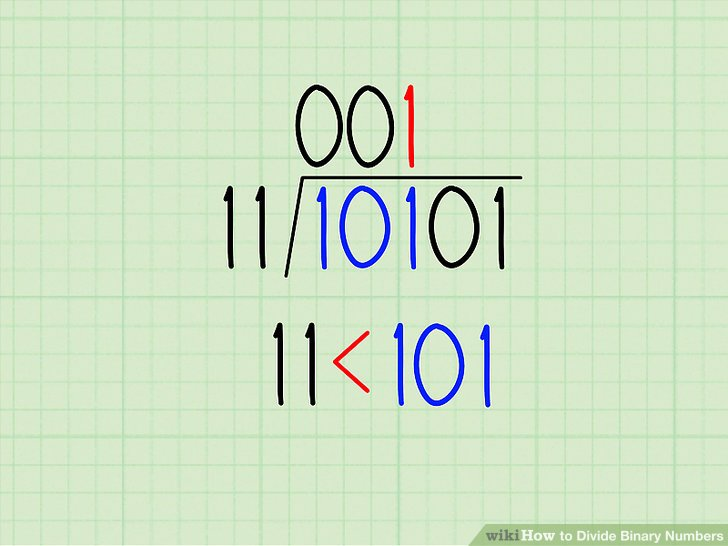 001
11/10101
11<101
wikiHow to Divide Binary Numbers